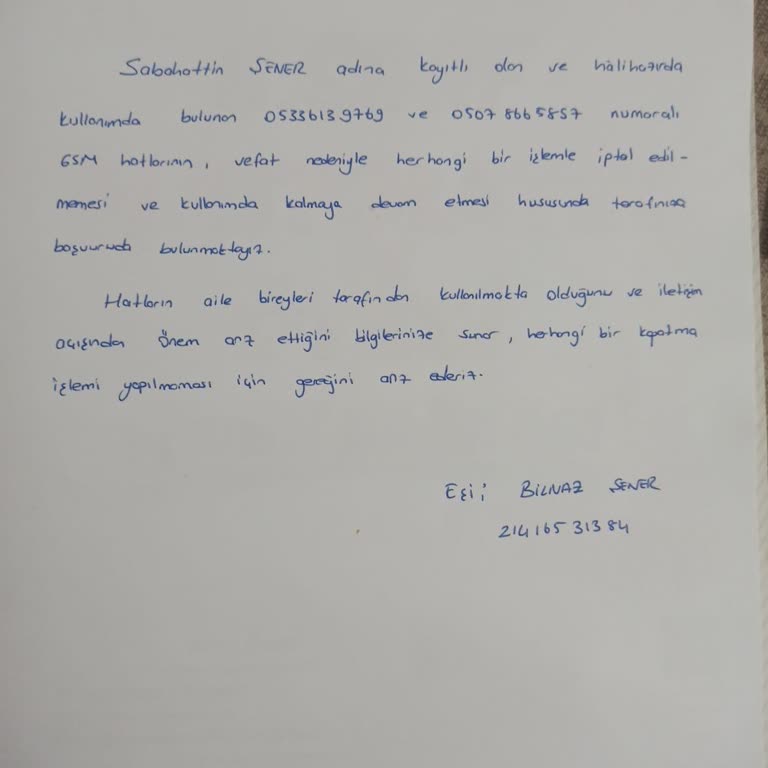 Sabahattin ŞENER adına kayıtlı olan ve halihazırda
kullanımda bulunan 05336139769 ve 05078665857 numaralı
GSM hatlarının, vefat nedeniyle herhangi bir işlemle iptal edil-
memesi ve kullanımda kalmaya devam etmesi hususunda tarafınıza
başvuruda bulunmaktayız.
Hatların aile bireyleri tarafından kullanılmakta olduğunu ve iletişim
açısından önem arz ettiğini bilgilerinize sunar, herhangi bir kapatma
işlemi yapılmaması için gereğini arz ederiz.
Eşi; BİLNAZ ŞENER
21416531384